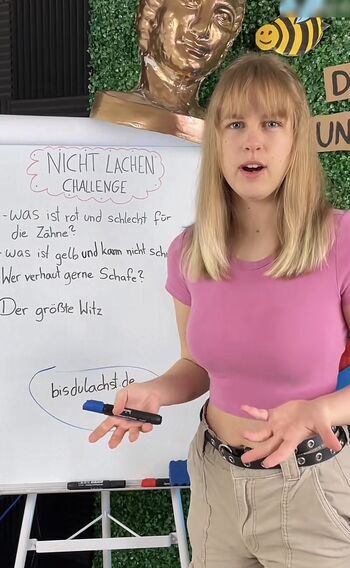 NICHT LACHEN
CHALLENGE
-WAS ist rot und schlecht für
die Zähne?
-was ist gelb und kann nicht
Wer verhaut gerne Schafe?
Der größte Witz
bisdulachst.de
D
UN